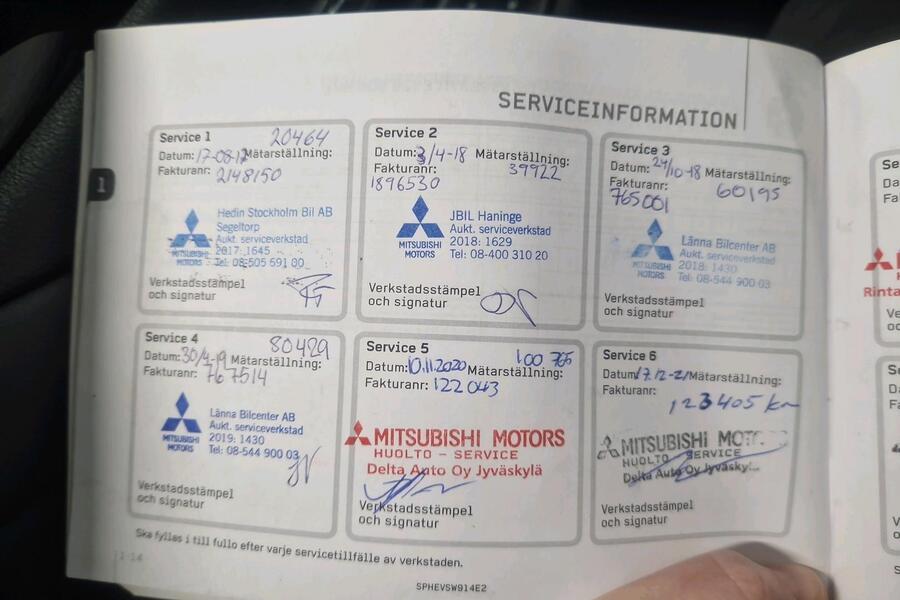 SERVICEINFORMATION
1
Service 1 20464
Datum: 17-08-17 Mätarställning:
Fakturanr: 2148150
Hedin Stockholm Bil AB
Segeltorp
Aukt. serviceverkstad
2017: 1645
Tel: 08-505 691 00
MITSUBISHI
MOTORS
Verkstadsstämpel
och signatur
Service 2
Datum: 3/4-18 Mätarställning:
Fakturanr: 39922
1896530
JBIL Haninge
Aukt. serviceverkstad
2018: 1629
Tel: 08-400 310 20
MITSUBISHI
MOTORS
Verkstadsstämpel
och signatur
Service 3
Datum: 24/10-18 Mätarställning:
Fakturanr: 60195
765001
Länna Bilcenter AB
Aukt. serviceverkstad
2018: 1430
Tel: 08-544 900 03
MITSUBISHI
MOTORS
Verkstadsstämpel
och signatur
Service 4 80429
Datum: 30/4-19 Mätarställning:
Fakturanr: 767514
Länna Bilcenter AB
Aukt. serviceverkstad
2019: 1430
Tel: 08-544 900 03
MITSUBISHI
MOTORS
Verkstadsstämpel
och signatur
Service 5 100 765
Datum: 10.11.2020 Mätarställning:
Fakturanr: 122043
MITSUBISHI MOTORS
HUOLTO - SERVICE
Delta Auto Oy Jyväskylä
Verkstadsstämpel
och signatur
Service 6
Datum: 17.12-21 Mätarställning:
Fakturanr:
123405 km
MITSUBISHI
HUOLTO SERVICE
Delta Auto Oy
Verkstadsstämpel
och signatur
Ska fyllas i till fullo efter varje servicetillfälle av verkstaden.
1-14
SPHEVSW914E2
Rinta